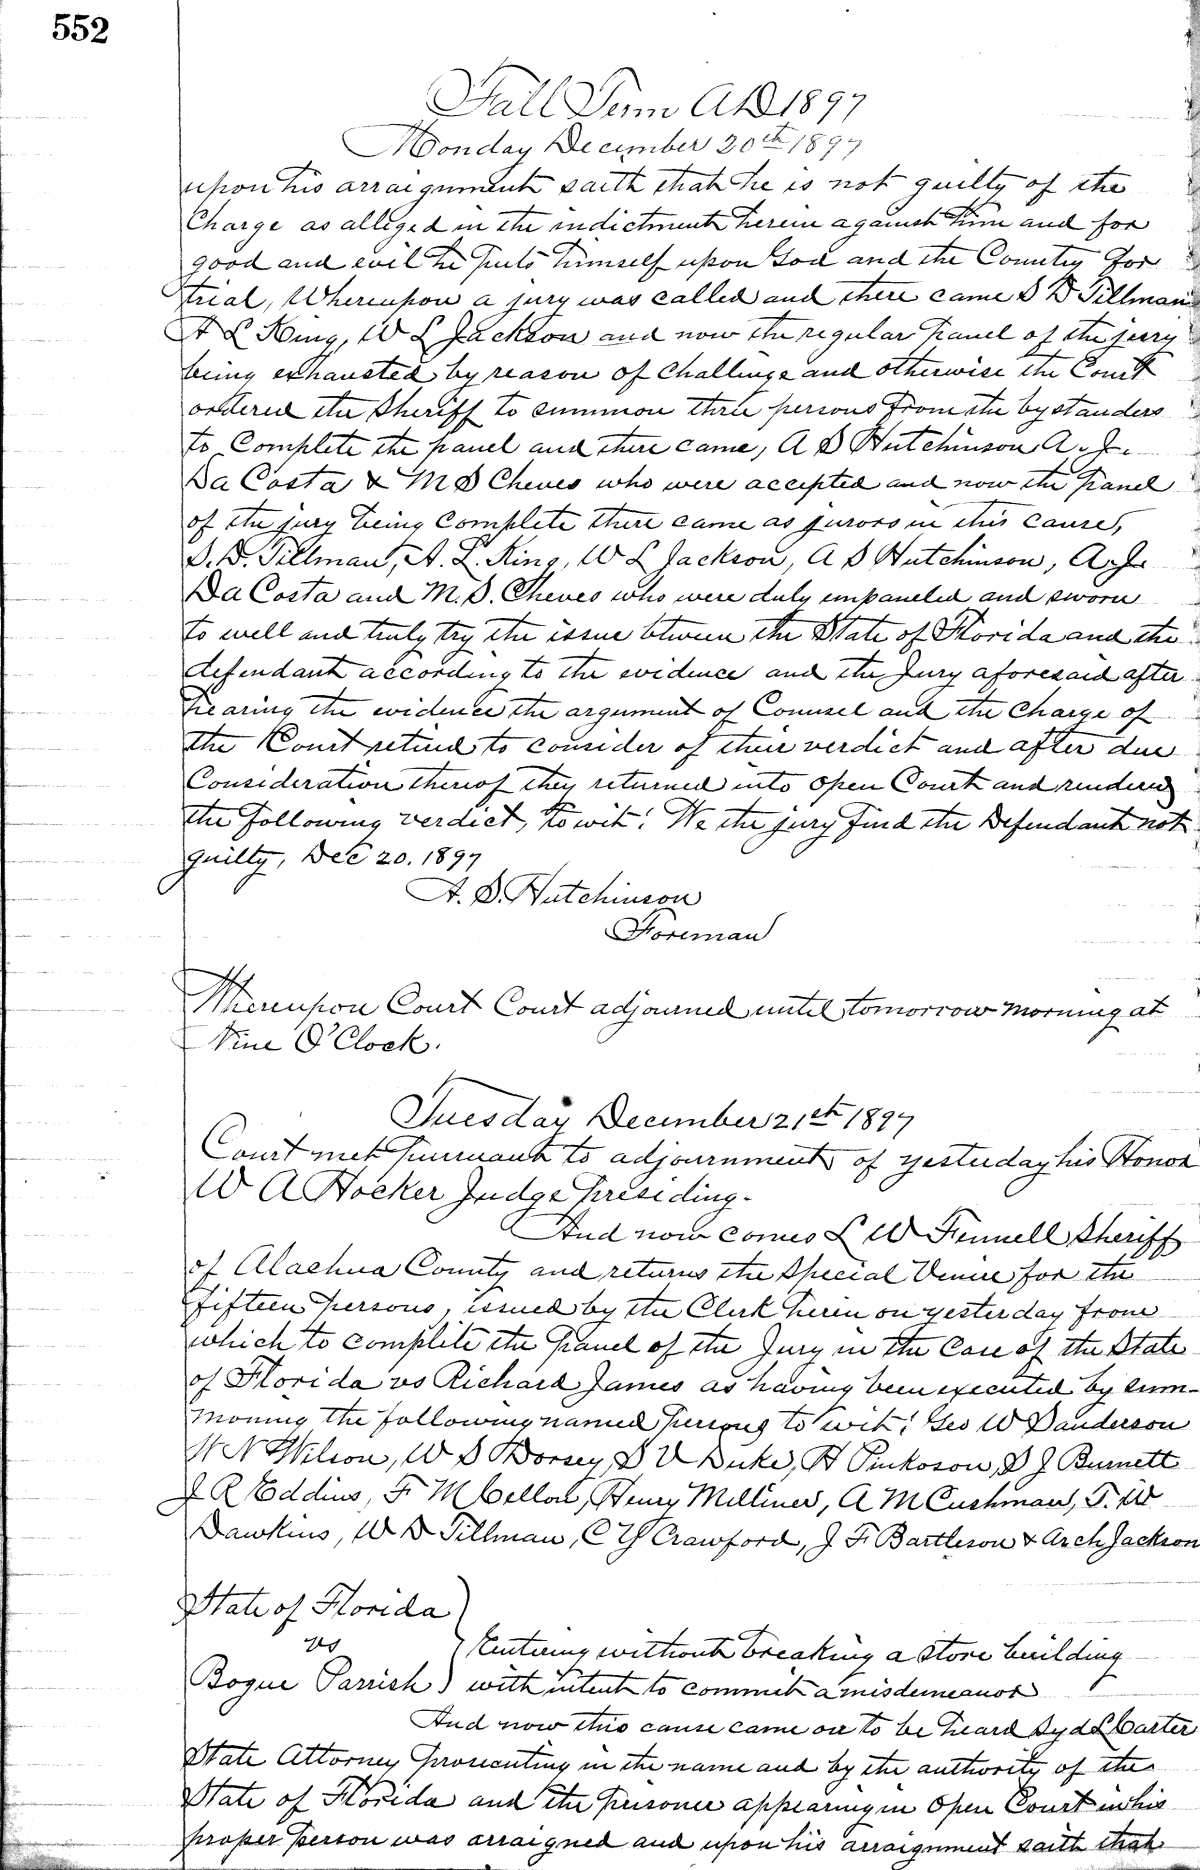 552
Fall Term AD 1897
Monday December 20th 1897
upon his arraignment saith that he is not guilty of the
Charge as alleged in the indictment herein against him and for
good and evil he puts himself upon God and the Country for
trial, Whereupon a jury was called and there came S D Tillman
A L King, W L Jackson and now the regular panel of the jury
being exhausted by reason of challenge and otherwise the Court
ordered the Sheriff to summon three persons from the bystanders
to Complete the panel and there came, A S Hutchinson A. J.
Da Costa & M S Cheves who were accepted and now the panel
of the jury being complete there came as jurors in this cause,
S. D. Tillman, A. L. King, W L Jackson, A S Hutchinson, A. J.
Da Costa and M. S. Cheves who were duly empaneled and sworn
to well and truly try the issue btween the State of Florida and the
defendant according to the evidence and the Jury aforesaid after
hearing the evidence the argument of Counsel and the Charge of
the Court retired to consider of their verdict and after due
Consideration thereof they returned into open Court and rendered
the following verdict, to wit: We the jury find the Defendant not
guilty, Dec 20. 1897
A. S. Hutchinson
Foreman
Whereupon Court Court adjourned until tomorrow morning at
Nine O'Clock.
Tuesday December 21st 1897
Court met pursuant to adjournment of yesterday his Honor
W A Hocker Judge presiding.
And now comes L W Fennell Sheriff
of Alachua County and returns the Special Venire for the
fifteen persons, issued by the Clerk herein on yesterday from
which to complete the Panel of the Jury in the Case of the State
of Florida vs Richard James as having been executed by sum-
moning the following named persons to wit: Geo W Sanderson
W N Wilson, W S Dorsey, S V Duke, H Pinkoson, S J Burnett
J R Eddins, F M Cellon, Henry Milliner, A M Cushman, T. W
Dawkins, W D Tillman, C Y Crawford, J F Bartleson & Arch Jackson
State of Florida
vs Entering without breaking a store building
Bogue Parrish with intent to commit a misdemeanor
And now this cause came on to be heard Syd L Carter
State Attorney prosecuting in the name and by the authority of the
State of Florida and the prisoner appearing in open Court in his
proper person was arraigned and upon his arraignment saith that